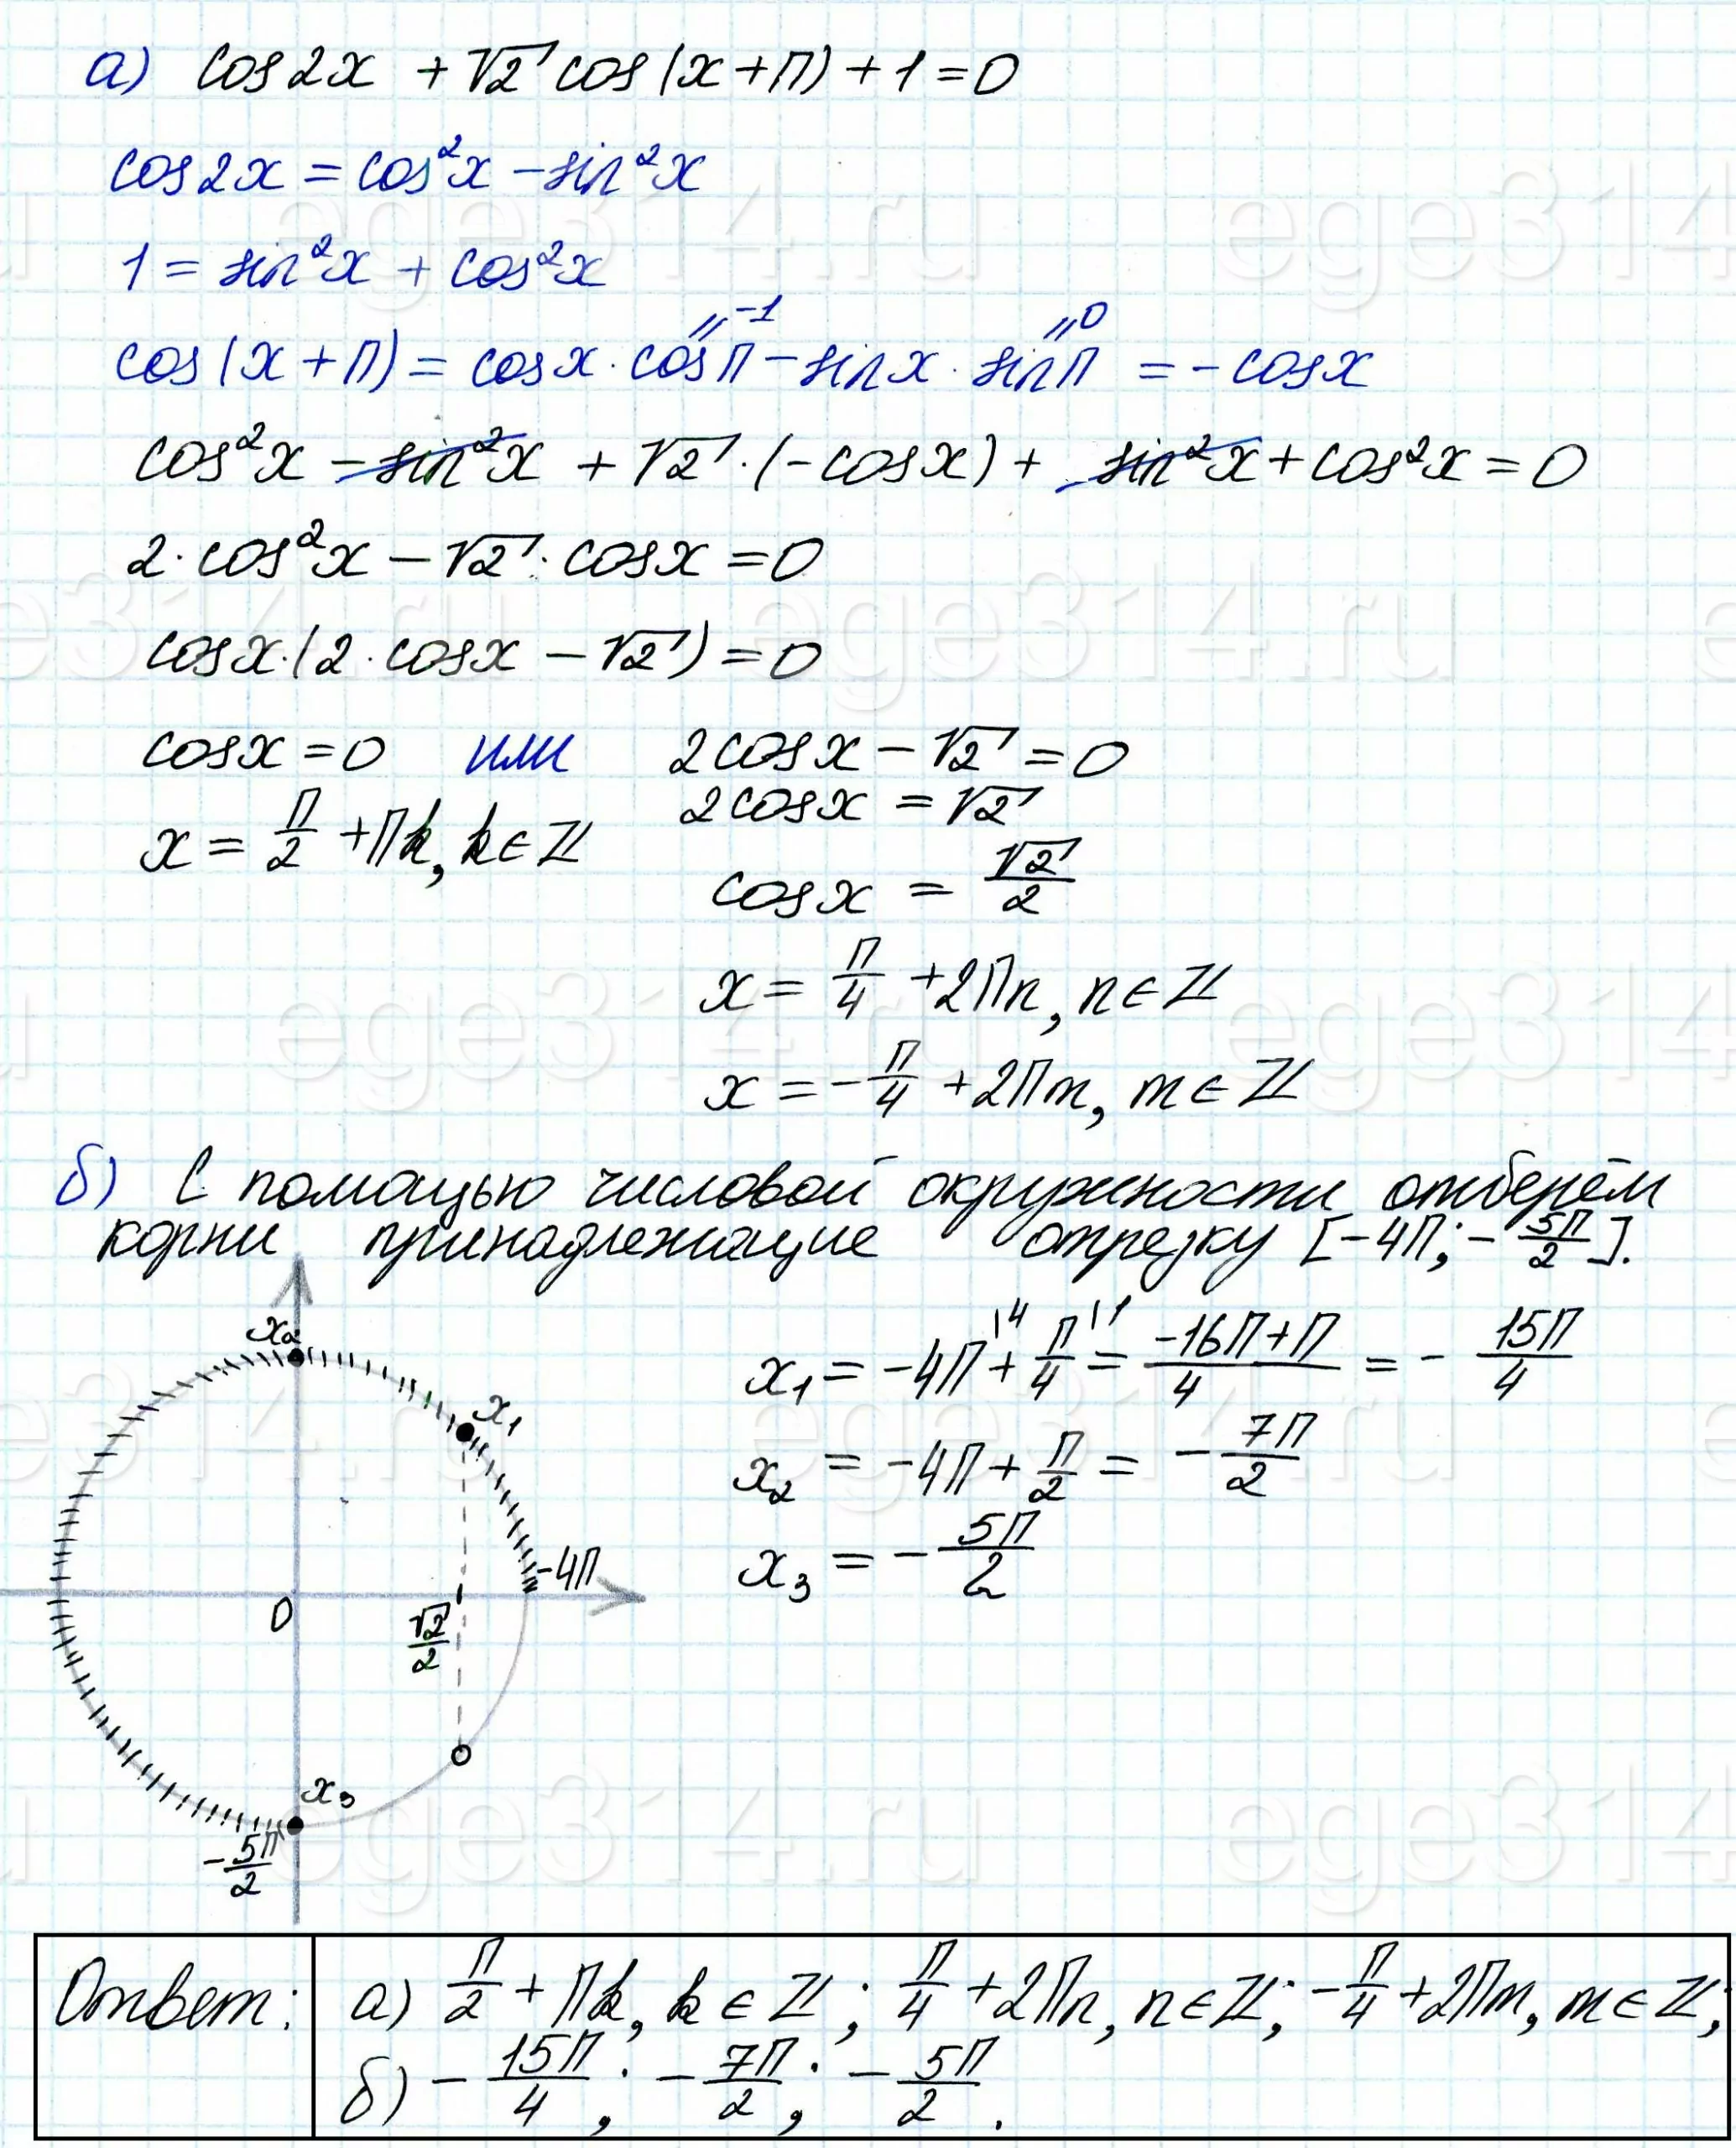 а) cos2x + √2 cos(x+π) + 1 = 0
cos2x = cos²x − sin²x
1 = sin²x + cos²x
cos(x+π) = cosx · cosπ − sinx · sinπ = −cosx
=−1 =0
cos²x − sin²x + √2 · (−cosx) + sin²x + cos²x = 0
2·cos²x − √2 · cosx = 0
cosx·(2·cosx − √2) = 0
cosx = 0 или 2cosx − √2 = 0
2cosx = √2
x = π/2 + πk, k ∈ ℤ
cosx = √2/2
x = π/4 + 2πn, n ∈ ℤ
x = −π/4 + 2πm, m ∈ ℤ
б) С помощью числовой окружности отберём
корни принадлежащие отрезку [−4π; −5π/2].
x₂
x₁
−4π
0
√2/2
x₃
−5π/2
x₁ = −4π\4 + π/4\1 = (−16π+π)/4 = −15π/4
x₂ = −4π + π/2 = −7π/2
x₃ = −5π/2
Ответ: а) π/2 + πk, k ∈ ℤ; π/4 + 2πn, n ∈ ℤ; −π/4 + 2πm, m ∈ ℤ;
б) −15π/4; −7π/2; −5π/2.
ege314.ru